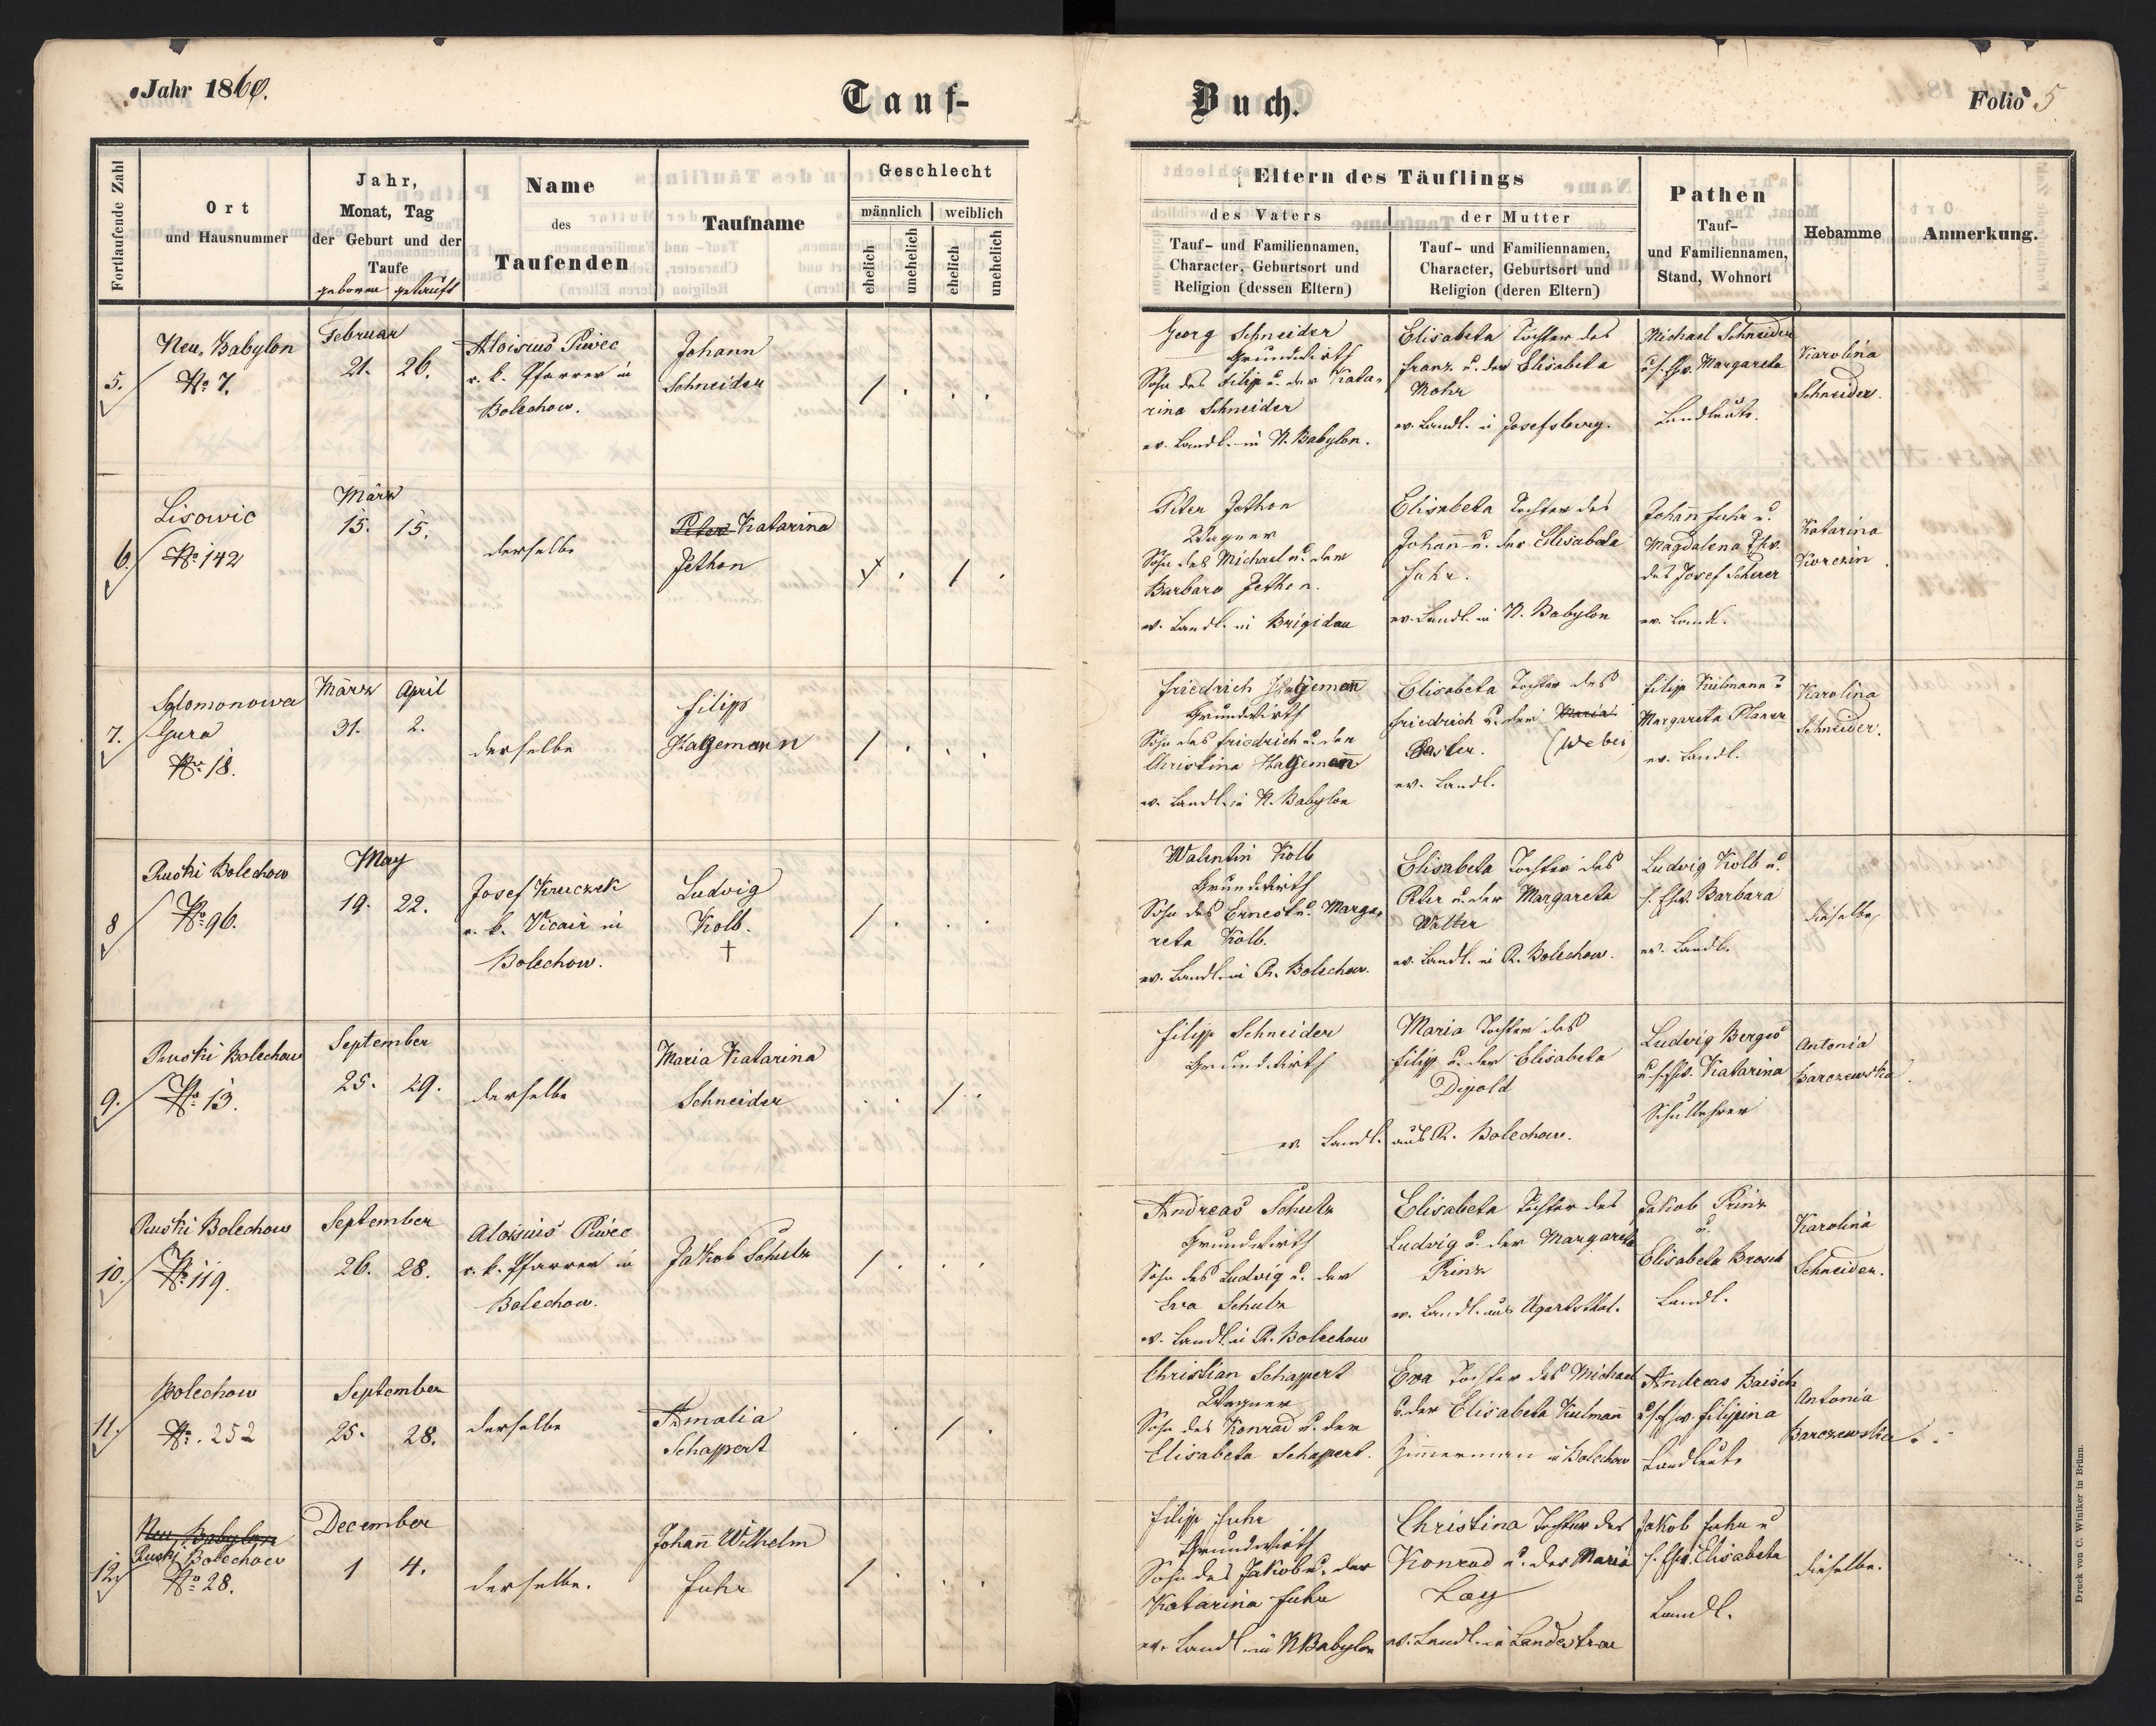 Jahr 1860.
Tauf-
Buch.
Folio 5
Fortlaufende Zahl
Ort
und Hausnummer
Jahr,
Monat, Tag
der Geburt und der
Taufe
geboren getauft
Name
des
Taufenden
Taufname
Geschlecht
männlich weiblich
ehelich unehelich ehelich unehelich
Eltern des Täuflings
des Vaters
Tauf- und Familiennamen,
Character, Geburtsort und
Religion (dessen Eltern)
der Mutter
Tauf- und Familiennamen,
Character, Geburtsort und
Religion (deren Eltern)
Pathen
Tauf-
und Familiennamen,
Stand, Wohnort
Hebamme
Anmerkung.
5.
Neu-Babylon
No 7.
Februar
21. 26.
Aloisius Piwec
r. k. Pfarrer in
Bolechow.
Johann
Schneider
Georg Schneider
Grundwirth
Sohn des Filip u. der Kata-
rina Schneider
ev. Landl. in N. Babylon.
Elisabeta Tochter des
Franz u. der Elisabeta
Mohr
ev. Landl. in Josefsberg.
Michael Schneider
u. s. Ehw. Margareta
Landleute.
Karolina
Schneider.
6.
Lisowic
No 142
März
15. 15.
derselbe
Peter Katarina
Jethon
Peter Jethon
Wagner
Sohn des Michael u. der
Barbara Jethon.
ev. Landl. in Brigidau
Elisabeta Tochter des
Johann u. der Elisabeta
Fuhr.
ev. Landl. in N. Babylon
Johann Fuhr u.
Magdalena Ehw.
des Josef Scherer
ev. Landl.
Katarina
Korczin
7.
Solomonowa
Gura
No 18.
März April
31. 2.
derselbe
Filipp
Hagemann
Friedrich Hagemann
Grundwirth
Sohn des Friedrich u. der
Christina Hagemann
ev. Landl. in N. Babylon
Elisabeta Tochter des
Friedrich u. der Maria
(Weber
ev. Landl.
Filip Kulmann u
Margareta
ev. Landl.
Karolina
Schneider.
8
Ruski Bolechow
No 96.
May
19. 22.
Josef Kruczek
r. k. Vicair in
Bolechow.
Ludvig
Kolb.
†
Walentin Kolb
Grundwirth
Sohn des Ernest u. Marga-
reta Kolb.
ev. Landl. in R. Bolechow.
Elisabeta Tochter des
Peter u. der Margareta
Walter
ev. Landl. in R. Bolechow.
Ludvig Kolb u.
s. Ehw. Barbara
ev. Landl.
dieselbe
9.
Ruski Bolechow
No 13.
September
25. 29.
derselbe
Maria Katarina
Schneider
Filipp Schneider
Grundwirth
Maria Tochter des
Filipp u. der Elisabeta
Dipold
ev. Landl. aus R. Bolechow.
Ludvig Berges
u. s. Ehw. Katarina
Schullehrer
Antonia
Barczewska.
10.
Ruski Bolechow
No 119.
September
26. 28.
Aloisius Piwec
r. k. Pfarrer in
Bolechow.
Jakob Schulz
Andreas Schulz
Grundwirth
Sohn des Ludwig u. der
Eva Schulz
ev. Landl. in R. Bolechow
Elisabeta Tochter des
Ludvig u. der Margareta
Prinz
ev. Landl. aus Ugartsthal.
Jakob Prinz
u.
Elisabeta Brosch
Landl.
Karolina
Schneider.
11.
Bolechow
No. 252
September
25. 28.
derselbe
Amalia
Schappert
Christian Schappert
Wagner
Sohn des Konrad u. der
Elisabeta Schappert.
Eva Tochter des Michael
u. der Elisabeta Kulmann
Zimmermann in Bolechow
Andreas Baisch
u. s. Ehw. Filipina
Landleute
Antonia
Barczewska.
12.
Neu-Babylon
Ruski Bolechow
No 28.
December
1 4.
derselbe.
Johann Wilhelm
Fuhr
Filipp Fuhr
Grundwirth
Sohn des Jakob u. der
Katarina Fuhr
ev. Landl. in N Babylon
Christina Tochter des
Konrad u. der Maria
Lay
ev. Landl. in Landestreu
Jakob Fuhr u
s. Ehw. Elisabeta
Landl.
dieselbe.
Druck von C. Winiker in Brünn.